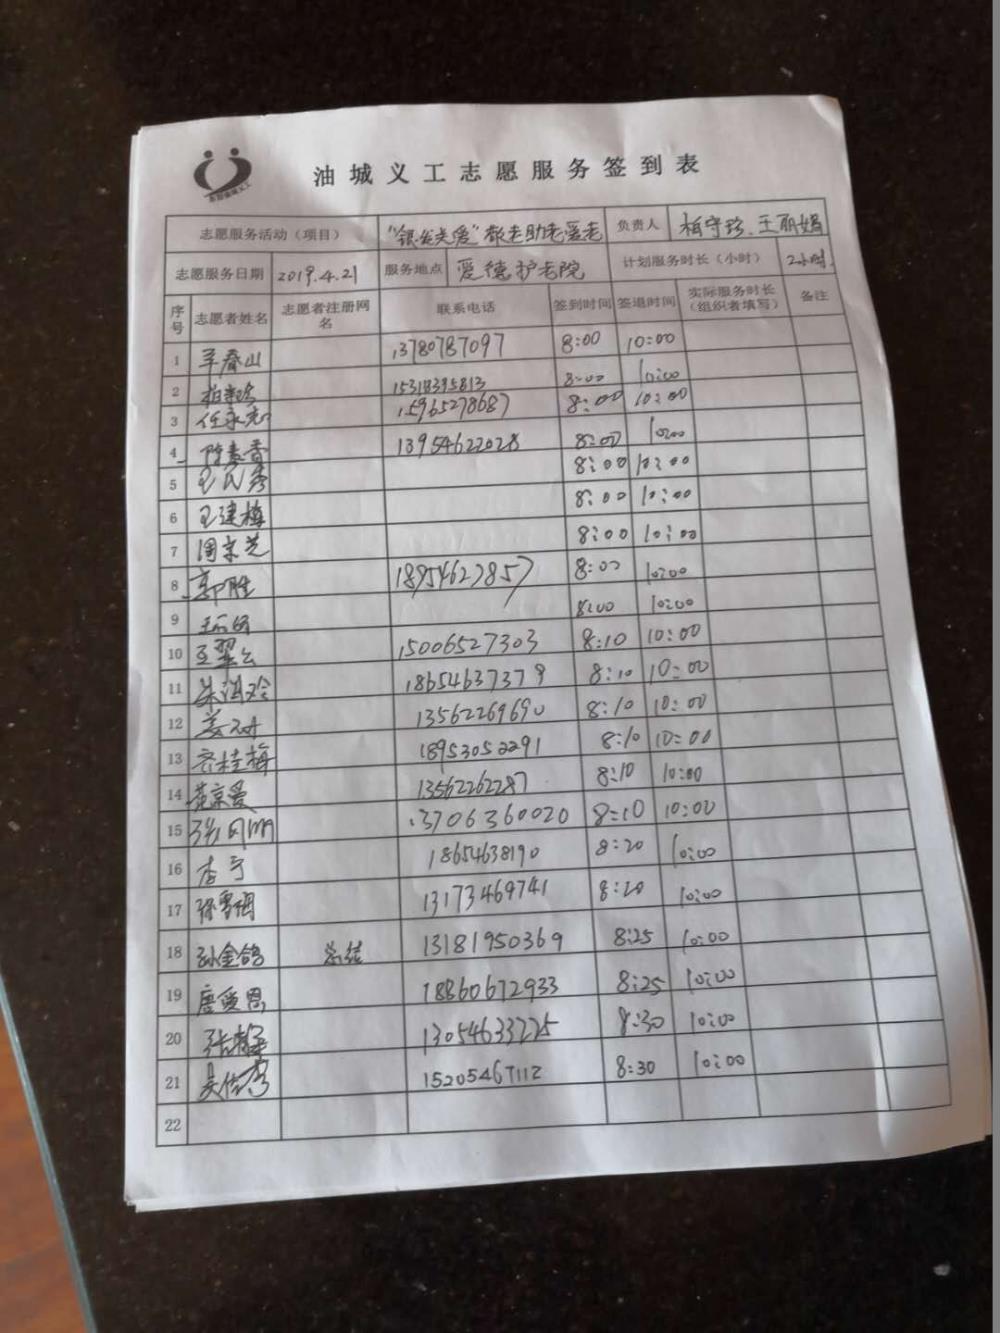 油城义工志愿服务签到表
志愿服务活动（项目） “银发关爱”敬老助老爱老 负责人 王丽娟
志愿服务日期 2019.4.21 服务地点 爱德护老院 计划服务时长（小时） 2小时.
序号 志愿者姓名 志愿者注册网名 联系电话 签到时间 签退时间 实际服务时长（组织者填写） 备注
1 春山 13780787097 8:00 10:00
2 15318395813 8:00 10:00
3 任永志 15965278687 8:00 10:00
4 陈素香 13954622028 8:00 10:00
5 王民秀 8:00 10:00
6 王建梅 8:00 10:00
7 周京芝 8:00 10:00
8 郭胜 18954627857 8:00 10:00
9 8:00 10:00
10 15006527303 8:10 10:00
11 18654637379 8:10 10:00
12 13562269690 8:10 10:00
13 齐桂梅 18953052291 8:10 10:00
14 13562262287 8:10 10:00
15 13706360020 8:10 10:00
16 李宁 18654638190 8:20 10:00
17 13173469741 8:20 10:00
18 孙金鸽 总结 13181950369 8:25 10:00
19 唐爱恩 18860672933 8:25 10:00
20 13054633225 8:30 10:00
21 15205467112 8:30 10:00
22